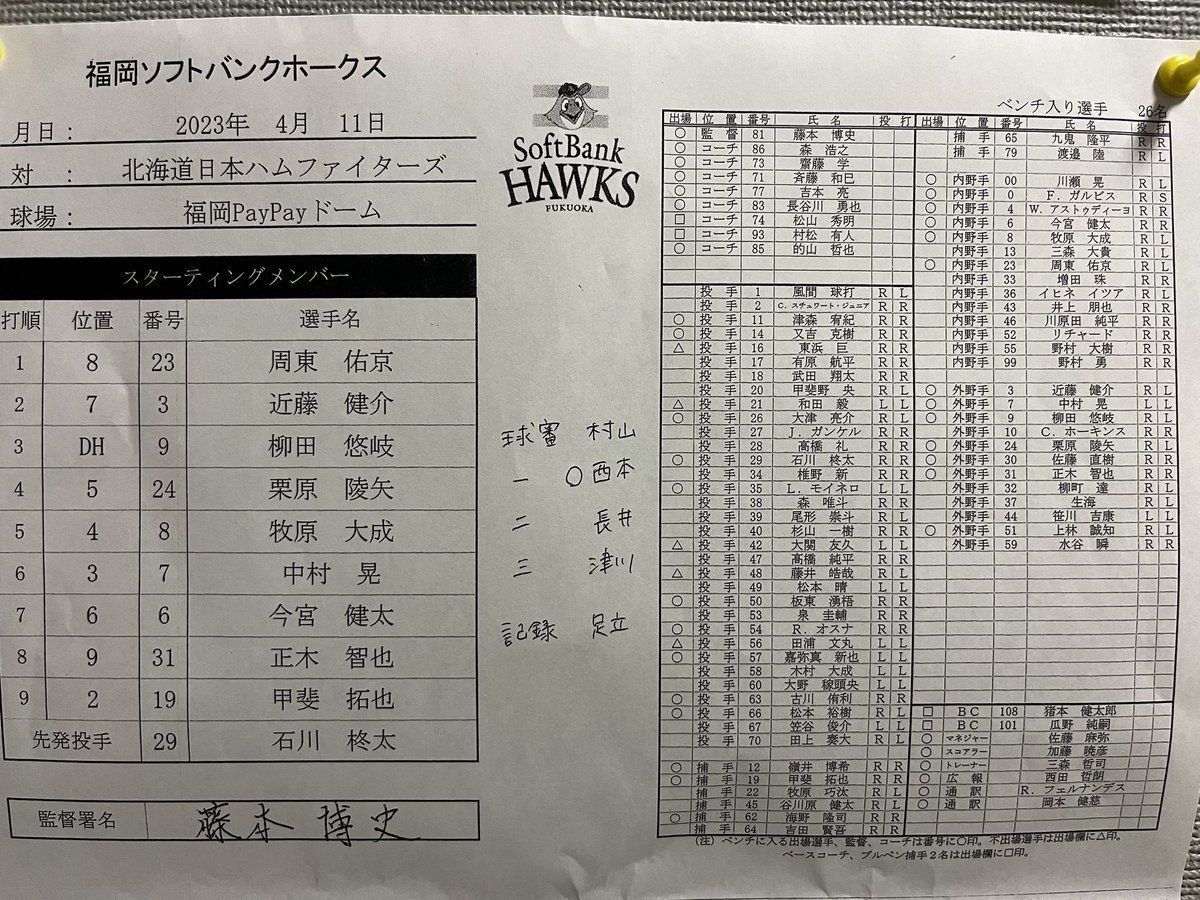 福岡ソフトバンクホークス
月日： 2023年 4月 11日
対 ： 北海道日本ハムファイターズ
球場： 福岡PayPayドーム
SoftBank
HAWKS
FUKUOKA
スターティングメンバー
打順 位置 番号 選手名
1 8 23 周東 佑京
2 7 3 近藤 健介
3 DH 9 柳田 悠岐
4 5 24 栗原 陵矢
5 4 8 牧原 大成
6 3 7 中村 晃
7 6 6 今宮 健太
8 9 31 正木 智也
9 2 19 甲斐 拓也
先発投手 29 石川 柊太
監督署名 藤本 博史
球審 村山
一 〇西本
二 長井
三 津川
記録 足立
ベンチ入り選手 26名
出場 位置 番号 氏名 投 打
〇 監督 81 藤本 博史
〇 コーチ 86 森 浩之
〇 コーチ 73 齋藤 学
〇 コーチ 71 斉藤 和巳
〇 コーチ 77 吉本 亮
〇 コーチ 83 長谷川 勇也
□ コーチ 74 松山 秀明
□ コーチ 93 村松 有人
〇 コーチ 85 的山 哲也
投手 1 風間 球打 R L
投手 2 C. スチュワート・ジュニア R R
〇 投手 11 津森 宥紀 R R
〇 投手 14 又吉 克樹 R R
△ 投手 16 東浜 巨 R R
投手 17 有原 航平 R R
投手 18 武田 翔太 R R
投手 20 甲斐野 央 R L
△ 投手 21 和田 毅 L L
〇 投手 26 大津 亮介 R L
投手 27 J. ガンケル R R
投手 28 高橋 礼 R R
〇 投手 29 石川 柊太 R R
投手 34 椎野 新 R R
〇 投手 35 L. モイネロ L L
投手 38 森 唯斗 R R
投手 39 尾形 崇斗 R L
投手 40 杉山 一樹 R R
△ 投手 42 大関 友久 L L
投手 47 高橋 純平 R R
△ 投手 48 藤井 皓哉 R L
投手 49 松本 晴 L L
〇 投手 50 板東 湧梧 R R
投手 53 泉 圭輔 R R
〇 投手 54 R. オスナ R R
△ 投手 56 田浦 文丸 L L
〇 投手 57 嘉弥真 新也 L L
投手 58 木村 大成 L L
投手 60 大野 稼頭央 L L
〇 投手 63 古川 侑利 R R
〇 投手 66 松本 裕樹 R L
投手 67 笠谷 俊介 L L
投手 70 田上 奏大 R L
〇 捕手 12 嶺井 博希 R R
〇 捕手 19 甲斐 拓也 R R
捕手 22 牧原 巧汰 R L
捕手 45 谷川原 健太 R L
〇 捕手 62 海野 隆司 R R
捕手 64 吉田 賢吾 R R
出場 位置 番号 氏名 投 打
捕手 65 九鬼 隆平 R R
捕手 79 渡邉 陸 R L
〇 内野手 00 川瀬 晃 R L
〇 内野手 0 F. ガルビス R S
〇 内野手 4 W. アストゥディーヨ R R
〇 内野手 6 今宮 健太 R R
〇 内野手 8 牧原 大成 R L
内野手 13 三森 大貴 R L
〇 内野手 23 周東 佑京 R L
内野手 33 増田 珠 R R
内野手 36 イヒネ イツア R L
内野手 43 井上 朋也 R R
内野手 46 川原田 純平 R R
内野手 52 リチャード R R
内野手 55 野村 大樹 R R
内野手 99 野村 勇 R R
〇 外野手 3 近藤 健介 R L
〇 外野手 7 中村 晃 L L
〇 外野手 9 柳田 悠岐 R L
外野手 10 C. ホーキンス R R
〇 外野手 24 栗原 陵矢 R L
〇 外野手 30 佐藤 直樹 R R
〇 外野手 31 正木 智也 R R
外野手 32 柳町 達 R L
外野手 37 生海 R L
外野手 44 笹川 吉康 L L
〇 外野手 51 上林 誠知 R L
外野手 59 水谷 瞬 R R
□ BC 108 猪本 健太郎
□ BC 101 瓜野 純嗣
〇 マネジャー 佐藤 麻弥
〇 スコアラー 加藤 暁彦
〇 トレーナー 三森 哲司
〇 広報 西田 哲朗
〇 通訳 R. フェルナンデス
〇 通訳 岡本 健慈
（注） ベンチに入る出場選手、監督、コーチは番号に〇印。不出場選手は出場欄に△印。
ベースコーチ、ブルペン捕手2名は出場欄に□印。